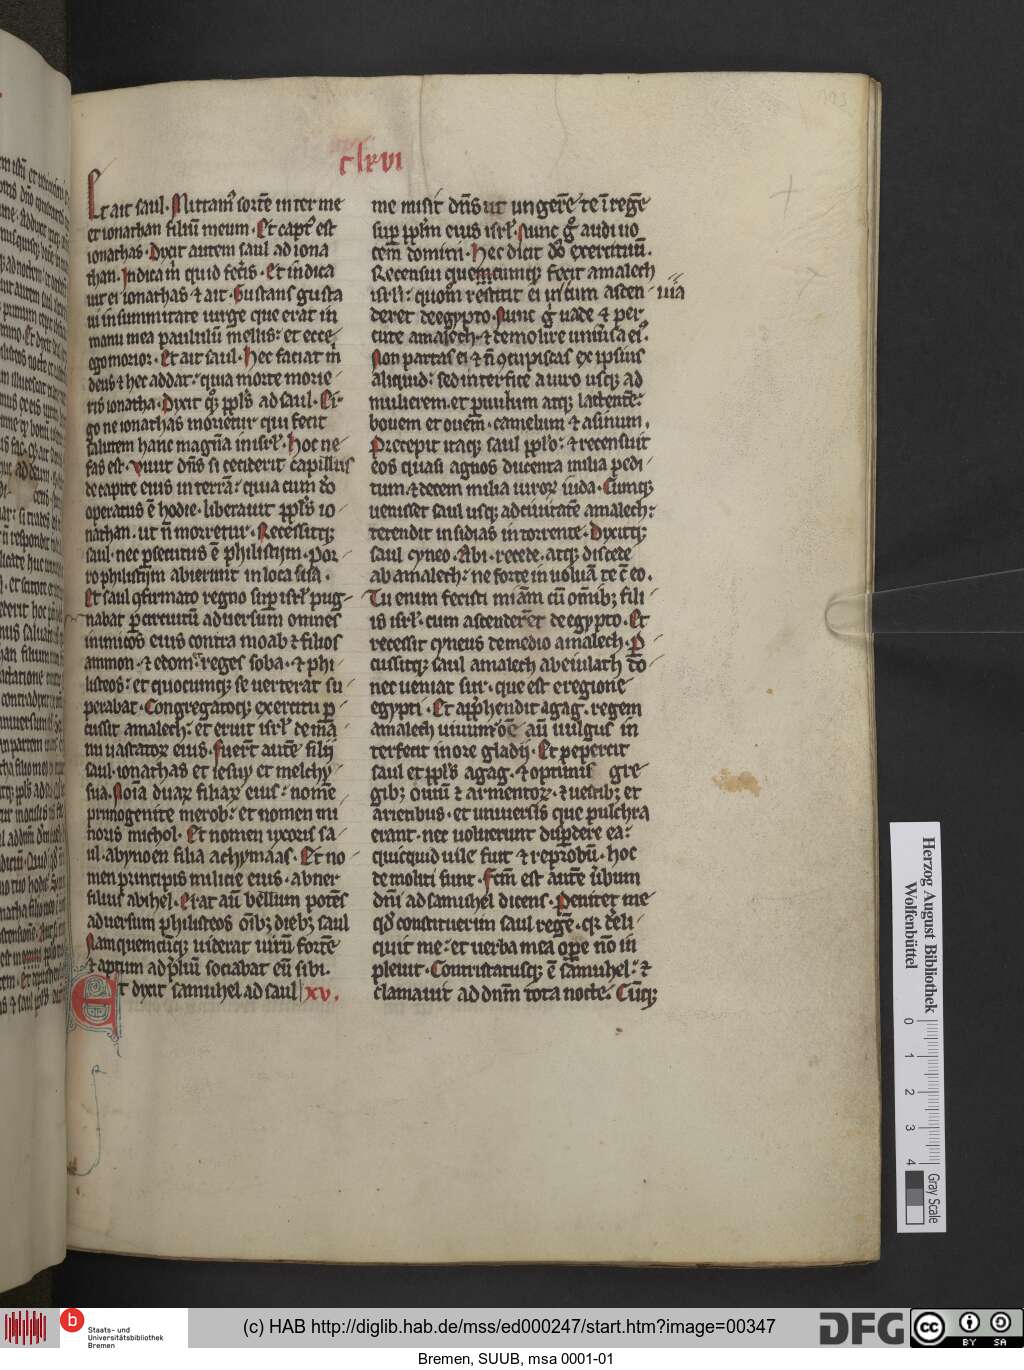 clxvi
Et ait saul. Mittam᷒ sorte̅ inter me
et ionathan filiu̅ meum. Et capt᷒ est
ionathas. Dixit autem saul ad iona
than. Indica m̅ quid fec̅is. Et indica
uit ei ionathas & ait. Gustans gusta
ui in summitate uirge que erat in
manu mea paululu̅ mellis: et ecce
ego morior. Et ait saul. Hec faciat m̅
deus & hec addat: quia morte morie
ris ionatha. Dixit q̅ ppl̅s ad saul. Er
go ne ionathas morietur qui fecit
salutem hanc magna̅ in isrl̅. Hoc ne
fas est. viuit dn̅s si ceciderit capillus
de capite eius in terra̅: quia cum do̅
operatus e̅ hodie. liberauit ppl̅s io
nathan. ut n̅ moreretur. Recessitq;
saul. nec p̅secutus e̅ philistijm. Por
ro philistijm abierunt in loca sua.
Et saul ꝯfirmato regno sup̅ isrl̅ pug
nabat p̅ circuitu̅ aduersum omnes
inimicos eius contra moab & filios
ammon. & edom: reges soba. & phi
listeos: et quocumq; se uerterat su
perabat. Congregatoq; exercitu p̅
cussit amalech: et eruit isrl̅ de ma̅
nu uastatoꝝ eius. Fuer̅t aute̅ filij
saul. ionathas et iesuy et melchy
sua. Noi̅a duaꝝ filiaꝝ eius: nom̅e
primogenite merob: et nomen mi
noris michol. Et nomen uxoris sa
ul. abynoen filia achymaas. Et no
men principis milicie eius. abner
filius abihel. Erat au̅ bellum pote̅s
aduersum philisteos oi̅b; dieb; saul
Nam quemcu̅q; uiderat uiru̅ forte̅
& aptum ad p̅liu̅ sociabat eu̅ sibi.
Et dixit samuhel ad saul xv.
me misit dn̅s ut ungere̅ te i̅ rege̅
sup̅ ppl̅m eius isrl̅. Nunc g̊ audi uo
cem domini. Hec dicit do̅ exercituu̅.
Recensui quemcumq; fecit amalech
isrl̅i: quom̅ restitit ei in cum ascen uia
deret de egypto. Nunc g̊ uade & per
cute amalech. & demolire uniu̅sa ei᷒.
Non partas ei & n̅ ꝯcupiscas ex ipsius
aliquid: sed interfice a uiro usq; ad
mulierem. et paruulum atq; lactente̅:
bouem et ouem. camelum & asinum.
Precepit itaq; saul ppl̅o: & recensuit
eos quasi agnos ducenta milia pedi
tum. & decem milia uiroꝝ iuda. Cumq;
uenisset saul usq; ad ciuitate̅ amalech:
tetendit insidias in torrente. Dixitq;
saul cyneo. Abi. recede. atq; discede
ab amalech: ne forte inuolua̅ te c̅ eo.
Tu enim fecisti mi̅am cu̅ omib; fili
is isrl̅. cum ascenderet de egypto. Et
recessit cyneus de medio amalech. P̅
cussitq; saul amalech ab euilath do̅
nec ueniat sur. que est e regione
egypti. Et app̅hendit agag. regem
amalech uiuum: om̅e au̅ uulgus in
terfecit in ore gladij. Et pepercit
saul et ppl̅s agag. & optimis gre
gib; ouiu̅ & armentoꝝ. & uestib; et
arietibus. et uniuersis que pulchra
erant. nec uoluerunt disp̅dere ea:
quicquid uile fuit & rep̅robu̅. hoc
demoliti sunt. Fc̅m est aute̅ u̅bum
dn̅i ad samuhel dicens. Penitet me
qd̅ constituerim saul rege̅. qꝛ de̅li
quit me: et uerba mea ope̅ no̅ in
pleuit. Contristatusq; e̅ samuhel: &
clamauit ad dnm̅ tota nocte. Cu̅q;
Herzog August Bibliothek
Wolfenbüttel
0 1 2 3 4
Gray Scale
b
Staats- und
Universitätsbibliothek
Bremen
(c) HAB http://diglib.hab.de/mss/ed000247/start.htm?image=00347
DFG
cc BY SA
Bremen, SUUB, msa 0001-01